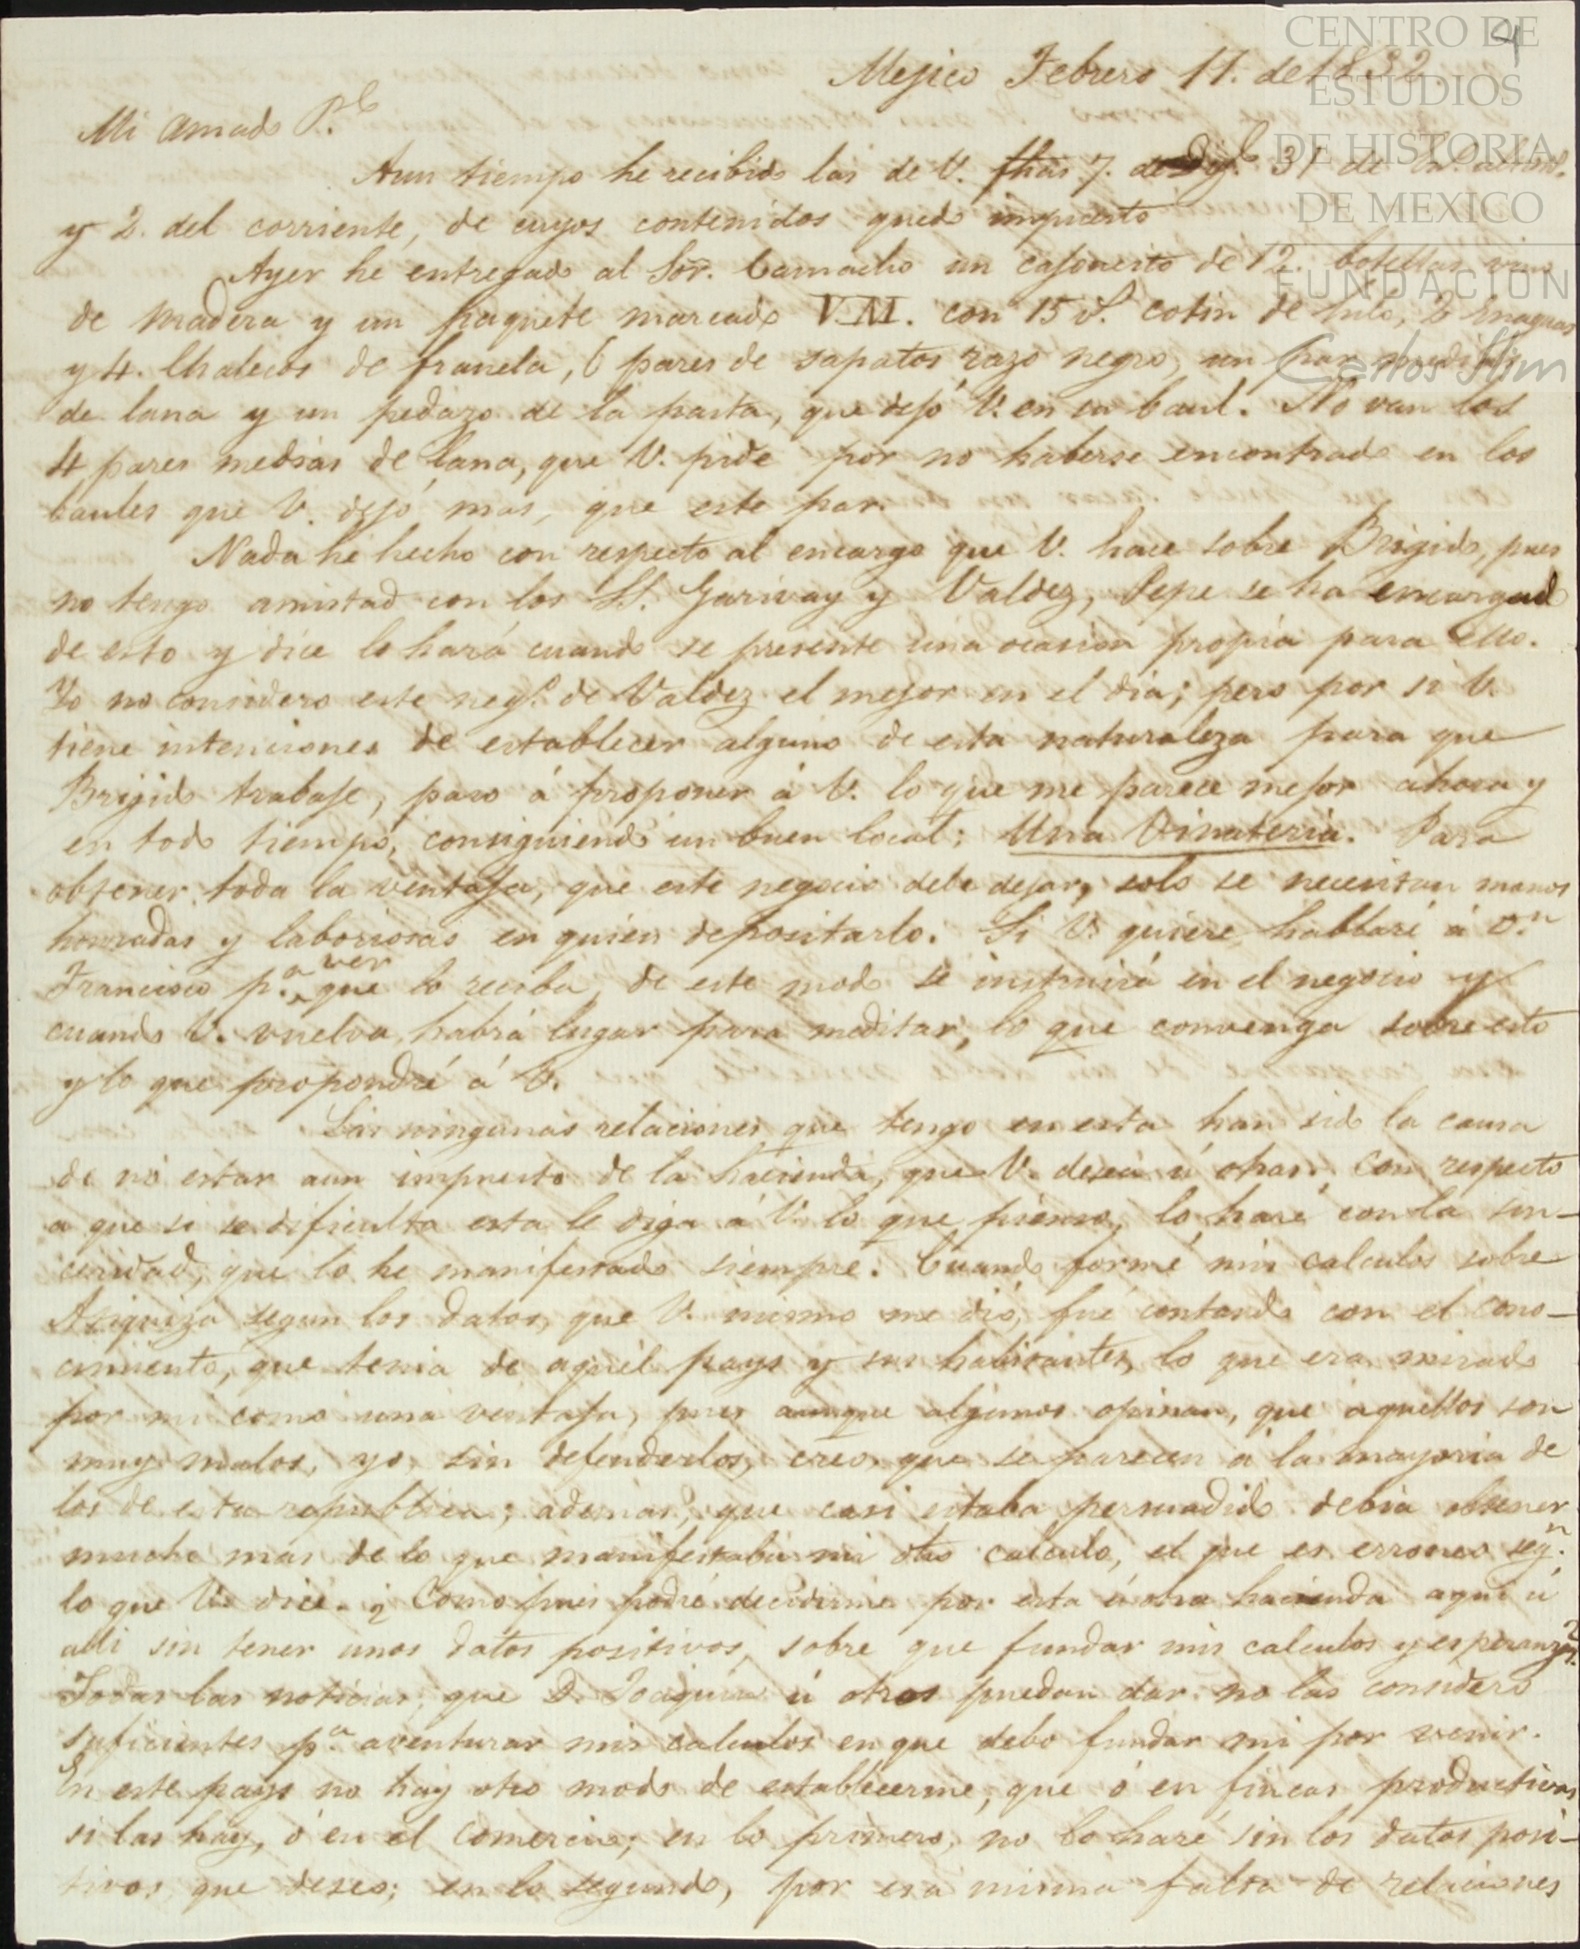 CENTRO DE
ESTUDIOS
DE HISTORIA
DE MEXICO
FUNDACION
Carlos Slim
4
Mejico Febrero 11. de 1832.
Mi amado P.e
Aun tiempo he recibido las de V. fhas 7. de 31 de
y 2. del corriente, de cuyos contenidos quedo impuesto
Ayer he entregado al Sor. Camacho un cajoncito de 12. botellas vino
de madera y un paquete marcado V.M. con 15 v.s cotin de hilo, 2 enaguas
y 4. Chalecos de franela, 6 pares de sapatos razo negro, un par medias
de lana y un pedazo de la pasta, que dejó V. en su baul. No van los
4 pares medias de lana, que V. pide por no haberse encontrado en los
baules que V. dejó mas, que este par.
Nada he hecho con respecto al encargo que V. hace sobre Brigido, pues
no tengo amistad con los SS. Garivay y Valdez, Pepe se ha encargado
de esto y dice lo hará cuando se presente una ocasion propia para ello.
Yo no considero este neg.o de Valdez el mejor en el dia; pero por si V.
tiene intenciones de establecer alguno de esta naturaleza para que
Brijido trabaje, paso á proponer á V. lo que me parece mejor ahora y
en todo tiempo, consiguiendo un buen local: Una Vinateria. Para
obtener toda la ventaja, que este negocio debe dejar, solo se necesitan manos
honradas y laboriosas en quien depositarlo. Si V. quiere hablaré á D.n
Francisco p.a ver que lo reciba, de este modo se instruirá en el negocio y
cuando V. vuelva habrá lugar para meditar, lo que convenga sobre esto
y lo que propondré á V.
Las ningunas relaciones que tengo en esta han sido la causa
de no estar aun impuesto de la hacienda, que V. desea ú otras. Con respecto
a que si se dificulta esta le diga á V. lo que pienso, lo haré con la sin-
ceridad, que lo he manifestado siempre. Cuando formé mis calculos sobre
segun los datos, que V. mismo me dió, fué contando con el cono-
cimiento, que tenia de aquel pays y sus habitantes, lo que era mirado
por mi como una ventaja, pues aunque algunos opinan, que aquellos son
muy malos, yo, sin defenderlos, creo, que se parecen á la mayoria de
los de esta republica; ademas, que casi estaba persuadido debia obtener
mucho mas de lo que manifestaba mi otro calculo, el que es erroneo seg.n
lo que V. dice. ¿ Como pues podré decidirme por esta ú otra hacienda aqui ú
alli sin tener unos datos positivos, sobre que fundar mis calculos y esperanzas?
Todas las noticias, que D. Joaquin ú otros puedan dar no las considero
suficientes p.a aventurar mis calculos en que debo fundar mi por venir.
En este pays no hay otro modo de establecerme, que ó en fincas productivas
si las hay, ó en el comercio; en lo primero, no lo haré sin los datos posi-
tivos, que deseo; en lo segundo, por esa misma falta de relaciones